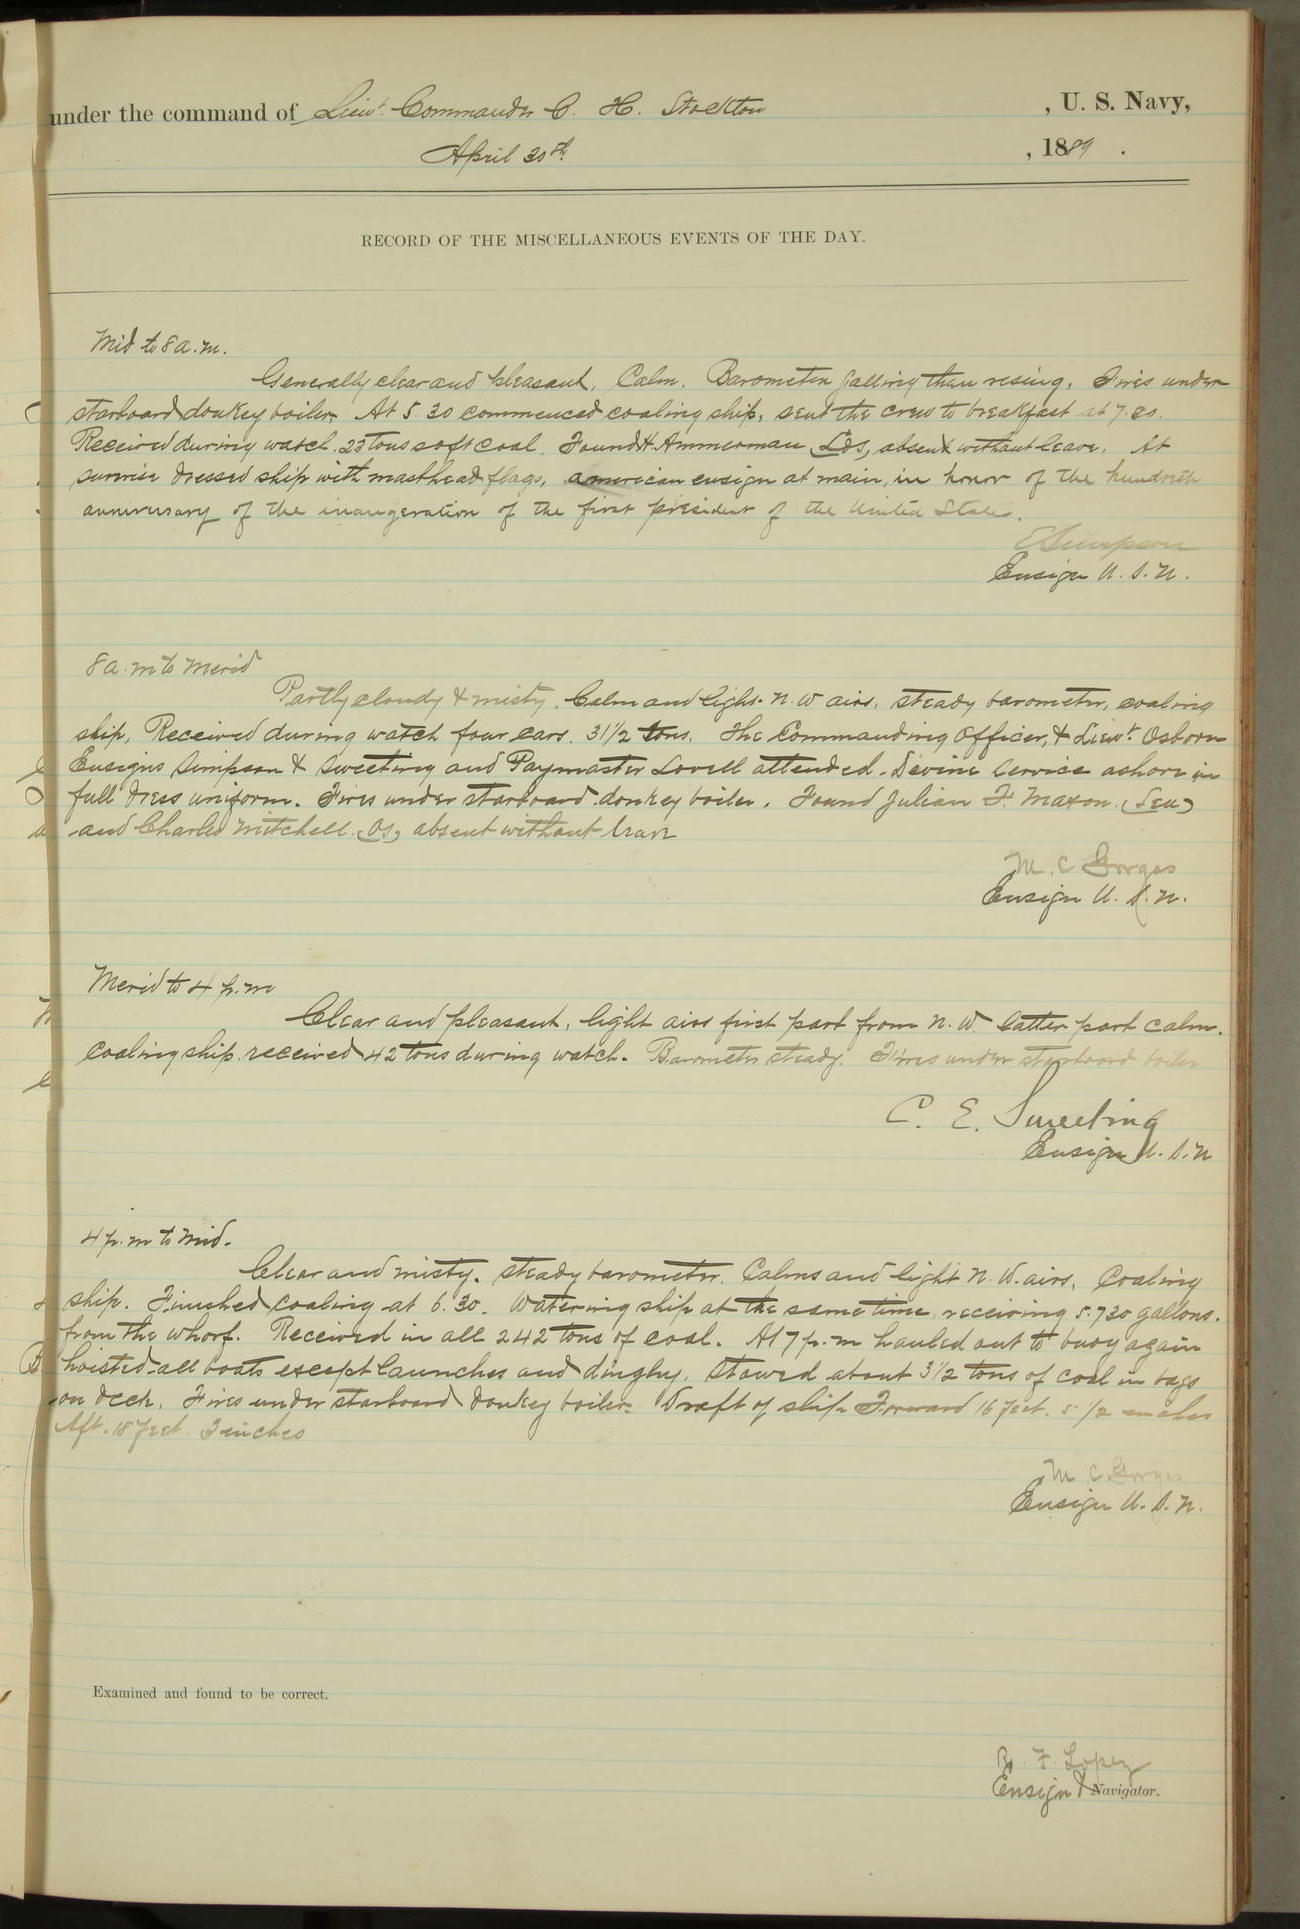 under the command of Lieut. Commander C. H. Stockton, U. S. Navy,
April 30th, 1889.
RECORD OF THE MISCELLANEOUS EVENTS OF THE DAY.
Mid to 8 a.m.
Generally clear and pleasant. Calm. Barometer falling then rising. Fires under
starboard donkey boiler. At 5.30 commenced coaling ship, sent the crew to breakfast at 7.30.
Received during watch 23 tons soft coal. Found H. Ammerman (Lds) absent without leave. At
sunrise dressed ship with masthead flags, american ensign at main, in honor of the hundreth
anniversary of the inaugeration of the first president of the United States.
E Simpson
Ensign U. S. N.
8 a.m to Merid
Partly cloudy & misty. Calm and light N.W airs, steady barometer, coaling
ship. Received during watch four cars. 31 1/2 tons. The Commanding Officer, & Lieut. Osborn
Ensigns Simpson & Sweeting and Paymaster Lovell attended Devine Service ashore in
full dress uniform. Fires under starboard donkey boiler. Found Julian F. Maxon (Sea)
and Charles Mitchell (Os) absent without leave
M. C Gorgas
Ensign U. S. N.
Merid to 4 p.m
Clear and pleasant, light airs first part from N. W. latter part calm.
Coaling ship received 42 tons during watch. Barometer steady. Fires under starboard boiler
C. E. Sweeting
Ensign U. S. N
4 p.m to Mid.
Clear and misty. Steady barometer. Calms and light N. W. airs. Coaling
ship. Finished coaling at 6.30. Watering ship at the same time, receiving 5.730 gallons.
from the wharf. Received in all 242 tons of coal. At 7 p.m hauled out to buoy again
hoisted all boats except launches and dinghy. Stowed about 3 1/2 tons of coal in bags
on deck. Fires under starboard donkey boiler. Draft of ship Forward 16 feet. 5 1/2 inches
Aft. 15 feet 3 inches
M C Gorgas
Ensign U. S. N.
Examined and found to be correct.
R. F. Lopez
Ensign & Navigator.